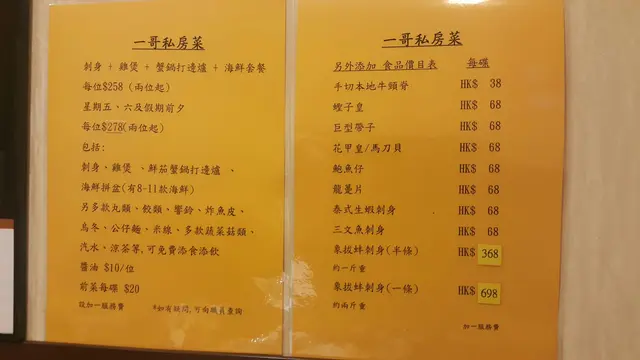 一哥私房菜
刺身 + 雞煲 + 蟹鍋打邊爐 + 海鮮套餐
每位$258 (兩位起)
星期五、六及假期前夕
每位$278(兩位起)
包括:
刺身、雞煲 、鮮茄蟹鍋打邊爐 、
海鮮拼盆(有8-11款海鮮)
另多款丸類、餃類、響鈴、炸魚皮、
烏冬、公仔麵、米線、多款蔬菜菇類、
汽水、涼茶等,可免費添食添飲
醬油 $10/位
前菜每碟 $20
設加一服務費 *如有疑問,可向職員查詢
一哥私房菜
另外添加 食品價目表 每碟
手切本地牛頸脊 HK$ 38
蟶子皇 HK$ 68
巨型帶子 HK$ 68
花甲皇/馬刀貝 HK$ 68
鮑魚仔 HK$ 68
龍躉片 HK$ 68
泰式生蝦刺身 HK$ 68
三文魚刺身 HK$ 68
象拔蚌刺身(半條) HK$ 368
約一斤重
象拔蚌刺身(一條) HK$ 698
約兩斤重
加一服務費